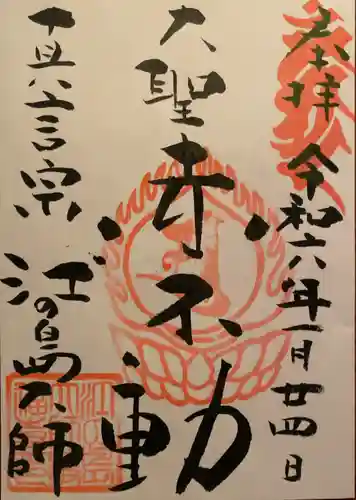 奉拝 令和六年一月廿四日
大聖寺不動
真言宗 江の島大師